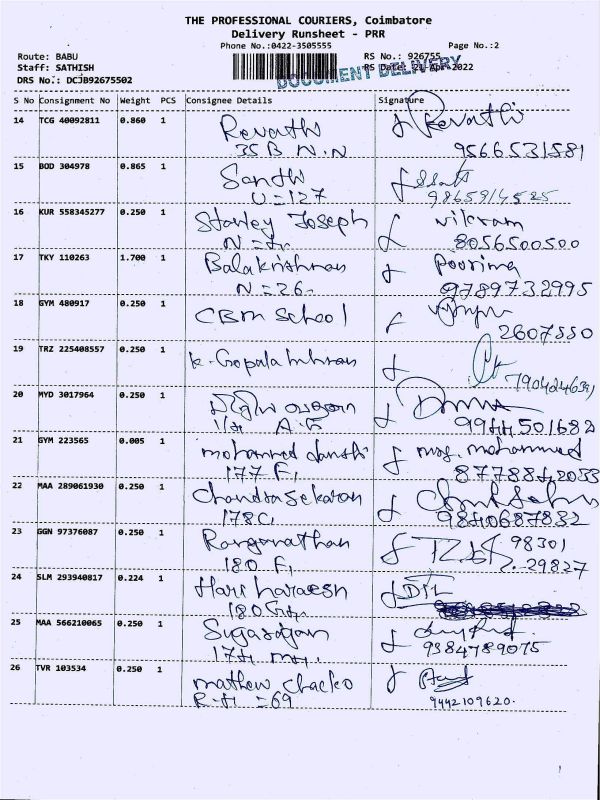 THE PROFESSIONAL COURIERS, Coimbatore
Delivery Runsheet - PRR
Phone No.:0422-3505555 Page No.:2
Route: BABU RS No.: 926755
Staff: SATHISH RS Date: 21-Apr-2022
DRS No.: DCJB92675502
DOCUMENT DELIVERY
S No Consignment No Weight PCS Consignee Details Signature
14 TCG 40092811 0.860 1 Revathi Revathi
35 B N.N 9566531581
15 BOD 304978 0.865 1 Santhi
U=127 9865914525
16 KUR 558345277 0.250 1 Stanley Joseph Vikram
8056500500
17 TKY 110263 1.700 1 Balakrishnan Poorima
N=26 9789732995
18 GYM 480917 0.250 1 CBM School
2607550
19 TRZ 225408557 0.250 1 K. Gopala
20 MYD 3017964 0.250 1
A.F 9944501682
21 GYM 223565 0.005 1 mohammed
177 F,
22 MAA 289061930 0.250 1 Chandrasekaran
178C, 9840687832
23 GGN 97376087 0.250 1 Ranganathan 98301
180 F, 29827
24 SLM 293940817 0.224 1 Hari
25 MAA 566210065 0.250 1
9384789075
26 TVR 103534 0.250 1 mathew chacko
R.H =69 9442109620.